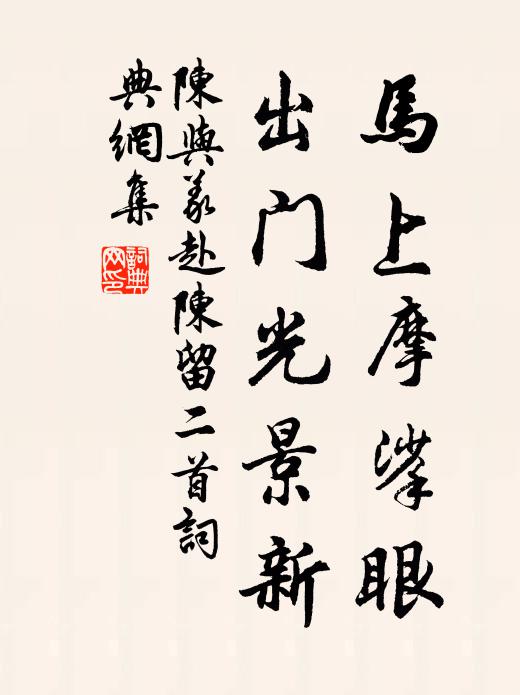 馬上摩挲眼
出門光景新
陳與義赴陳留二首詞
典網集
詞典
网印